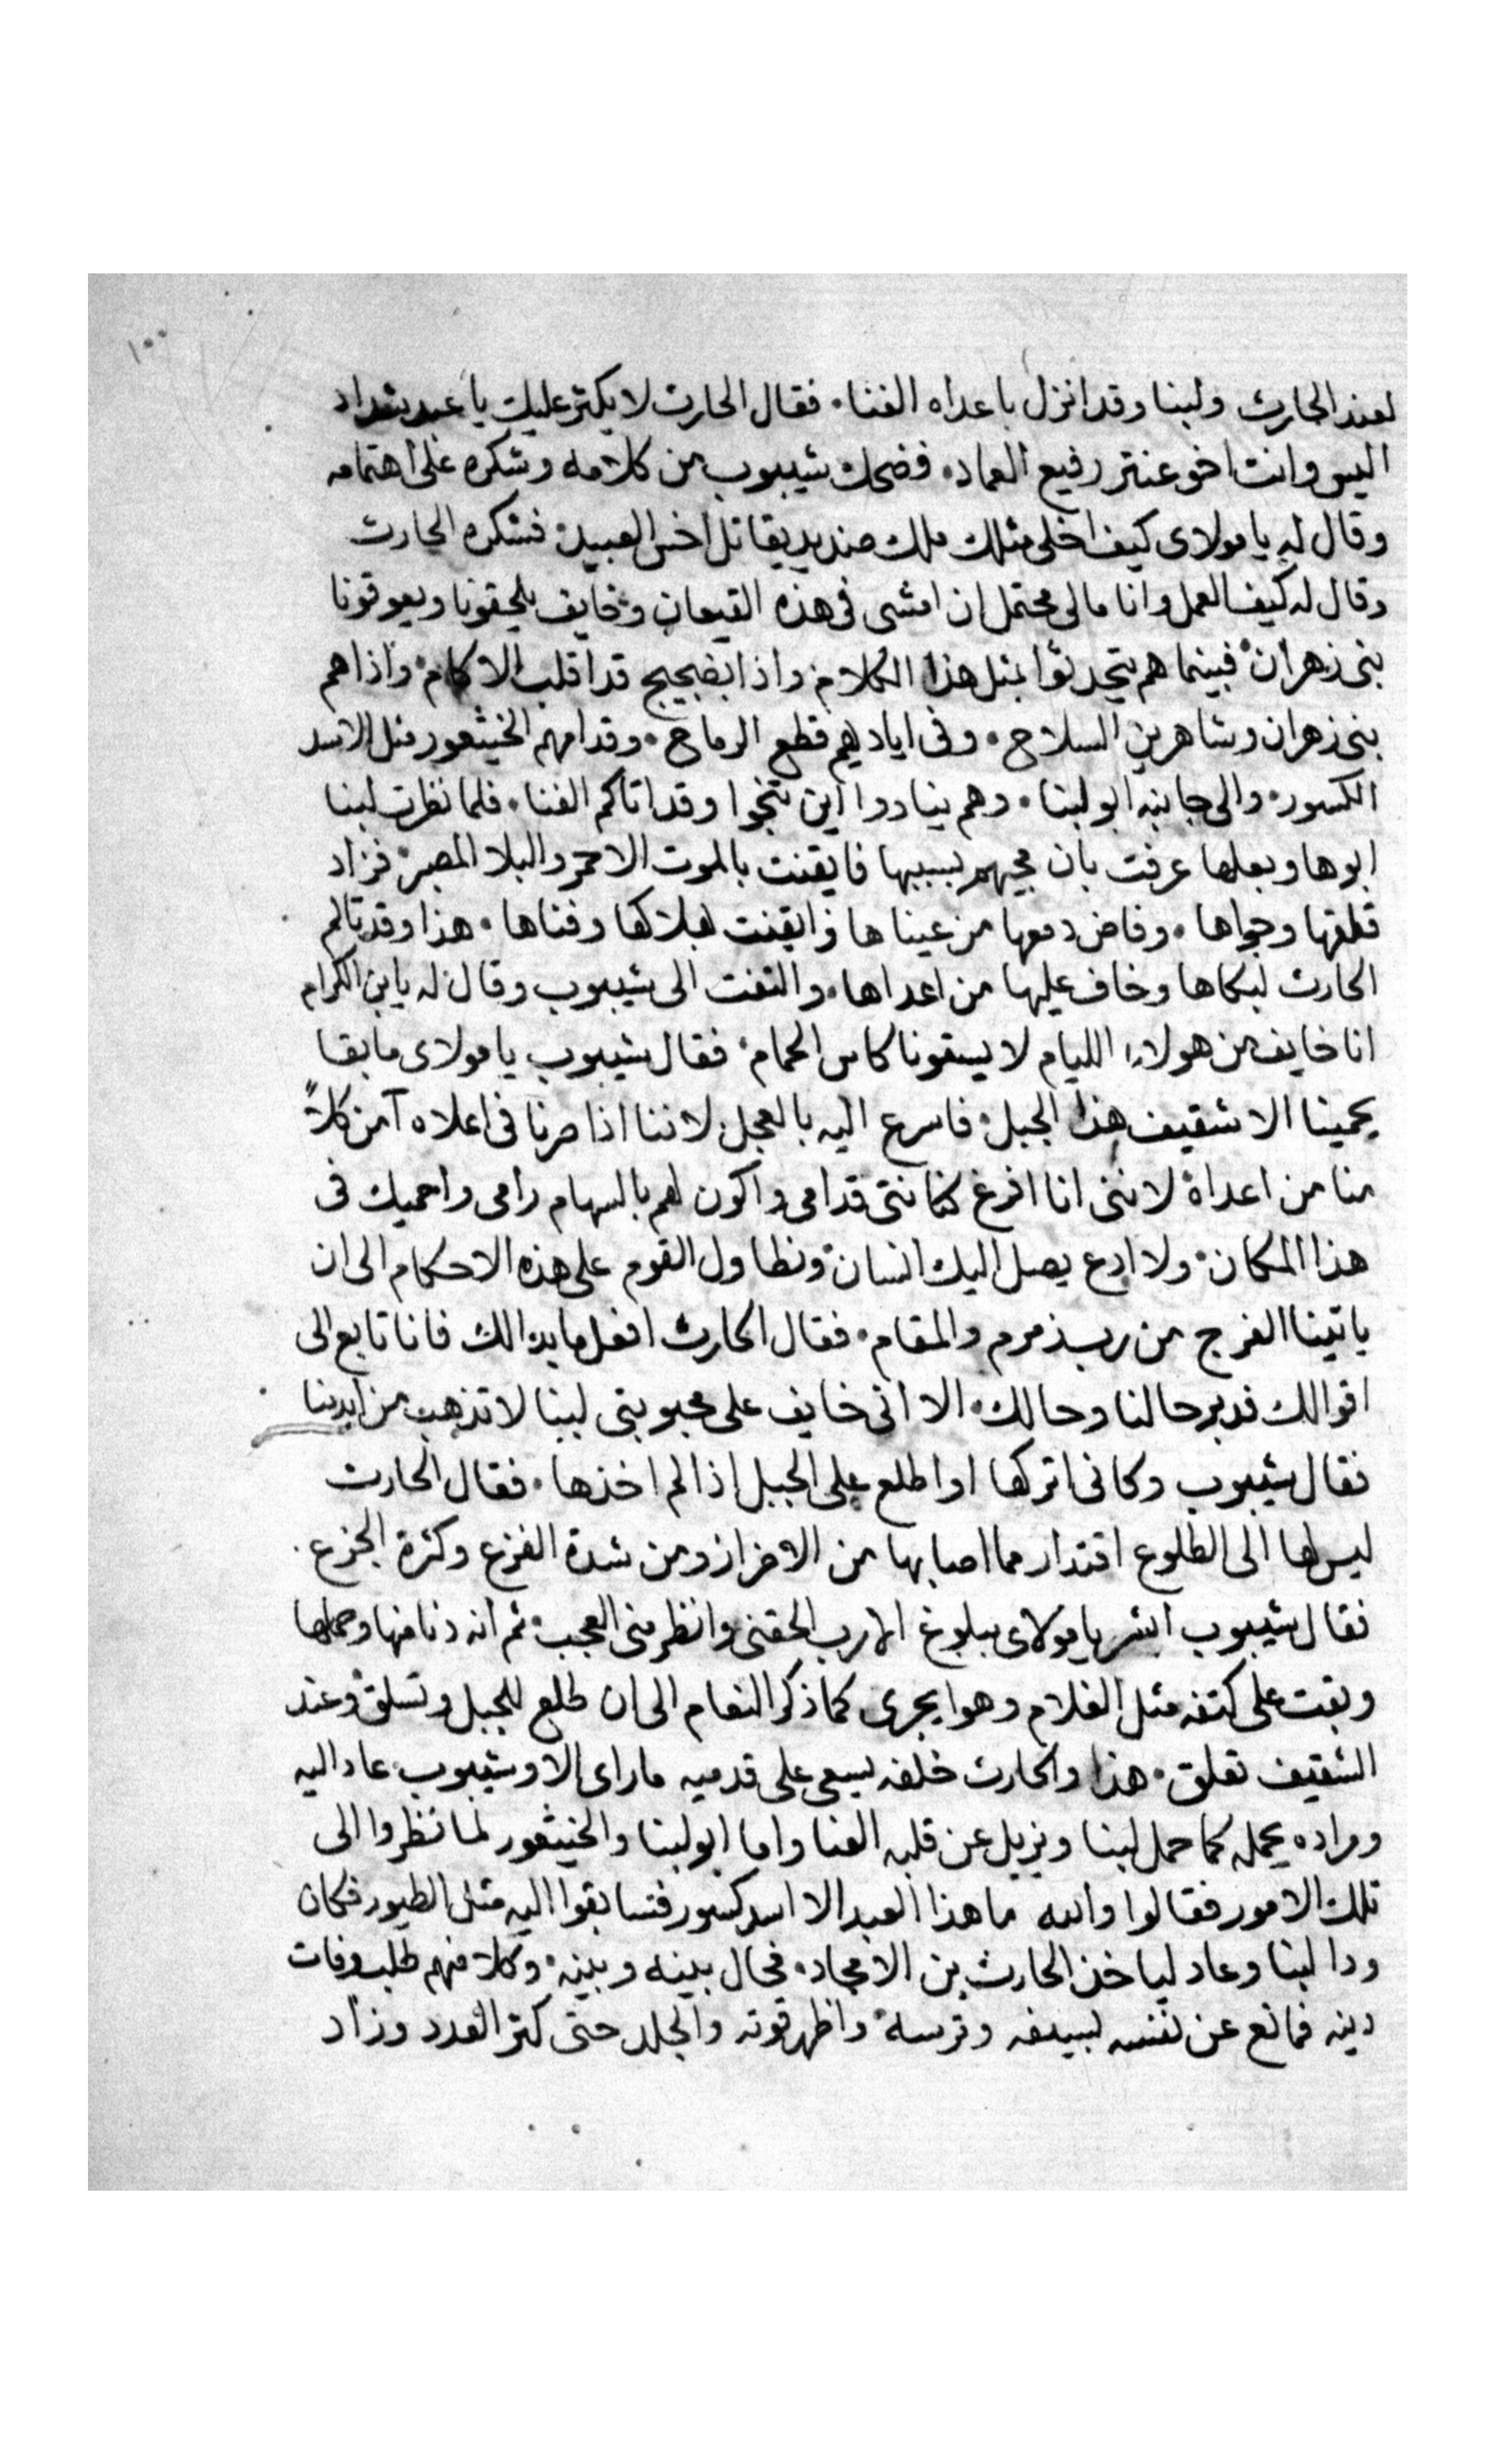 ١٠٠
لعند الحارث ولبنا وقد انزل باعداه الفنا. فقال الحارث لا يكثر عليك يا عبد شداد
اليس وانت اخو عنتر رفيع العماد. فضحك شيبوب من كلامه وشكره على اهتمامه
وقال له يا مولاى كيف اخلى مثلك ملك صنديد يقاتل اخس العبيد. فشكره الحارث
وقال له كيف العمل وانا مالى محتمل ان امشى فى هذه القيعان وخايف يلحقونا ويعوقونا
بنى زهران. فبينما هم يتحدثوا بمثل هذا الكلام واذا بضجيج قد اقلب الاكام. واذا هم
بنى زهران وشاهرين السلاح. وفى اياديهم قطع الرماح. وقدامهم الخيثعور مثل الاسد
الكسور. والى جانبه ابو لبنا. وهم ينادوا اين تنجوا وقد اتاكم الفنا. فلما نظرت لبنا
ابوها وبعلها عرفت بان مجيهم بسببها فايقنت بالموت الاحمر والبلا المصبر. فزاد
قلقها وجواها. وفاض دمعها من عيناها وايقنت لهلاكها وفناها. هذا وقد تالم
الحارث لبكاها وخاف عليها من اعداها. والتفت الى شيبوب وقال له يا بن الكرام
انا خايف من هولاء الليام لا يسقونا كاس الحمام. فقال شيبوب يا مولاى ما بقا
يحمينا الا شقيف هذا الجبل. فاسرع اليه بالعجل لاننا اذا صرنا فى اعلاه آمن كلاً
منا من اعداه لاننى انا افرغ كنانتى قدامى واكون لهم بالسهام رامى واحميك فى
هذا المكان. ولا ادع يصل اليك انسان ونطاول القوم على هذه الاحكام الى ان
ياتينا الفرج من رب زمزم والمقام. فقال الحارث افعل ما بدالك فانا تابع الى
اقوالك فدبر حالنا وحالك. الا انى خايف على محبوبتى لبنا لا تذهب من ايدينا
فقال شيبوب وكانى اتركها او اطلع على الجبل اذا لم اخذها. فقال الحارث
ليس لها الى الطلوع اقتدار مما اصابها من الاضرار ومن شدة الفزع وكثرة الجزع.
فقال شيبوب ابشر يا مولاى ببلوغ الارب الحقنى وانظر منى العجب. ثم انه دنا منها وحملها
وبقت على كتفه مثل الغلام وهو يجرى كما ذكر النعام الى ان طلع للجبل وتسلق وعند
الشقيف تعلق. هذا والحارث خلفه يسعى على قدميه ما راى الا وشيبوب عاد اليه
ومراده يحمله كما حمل لبنا ويزيل عن قلبه العنا واما ابو لبنا والخيثعور لما نظروا الى
تلك الامور فقالوا والله ما هذا العبد الا اسد كسور فتسابقوا اليه مثل الطيور فكان
ودا لبنا وعاد لياخذ الحارث بن الامجاد. فحال بينه وبينه. وكلا منهم طلب وفات
دينه فمانع عن نفسه بسيفه وترسه. واظهر قوته والجلد حتى كثر العدد وزاد